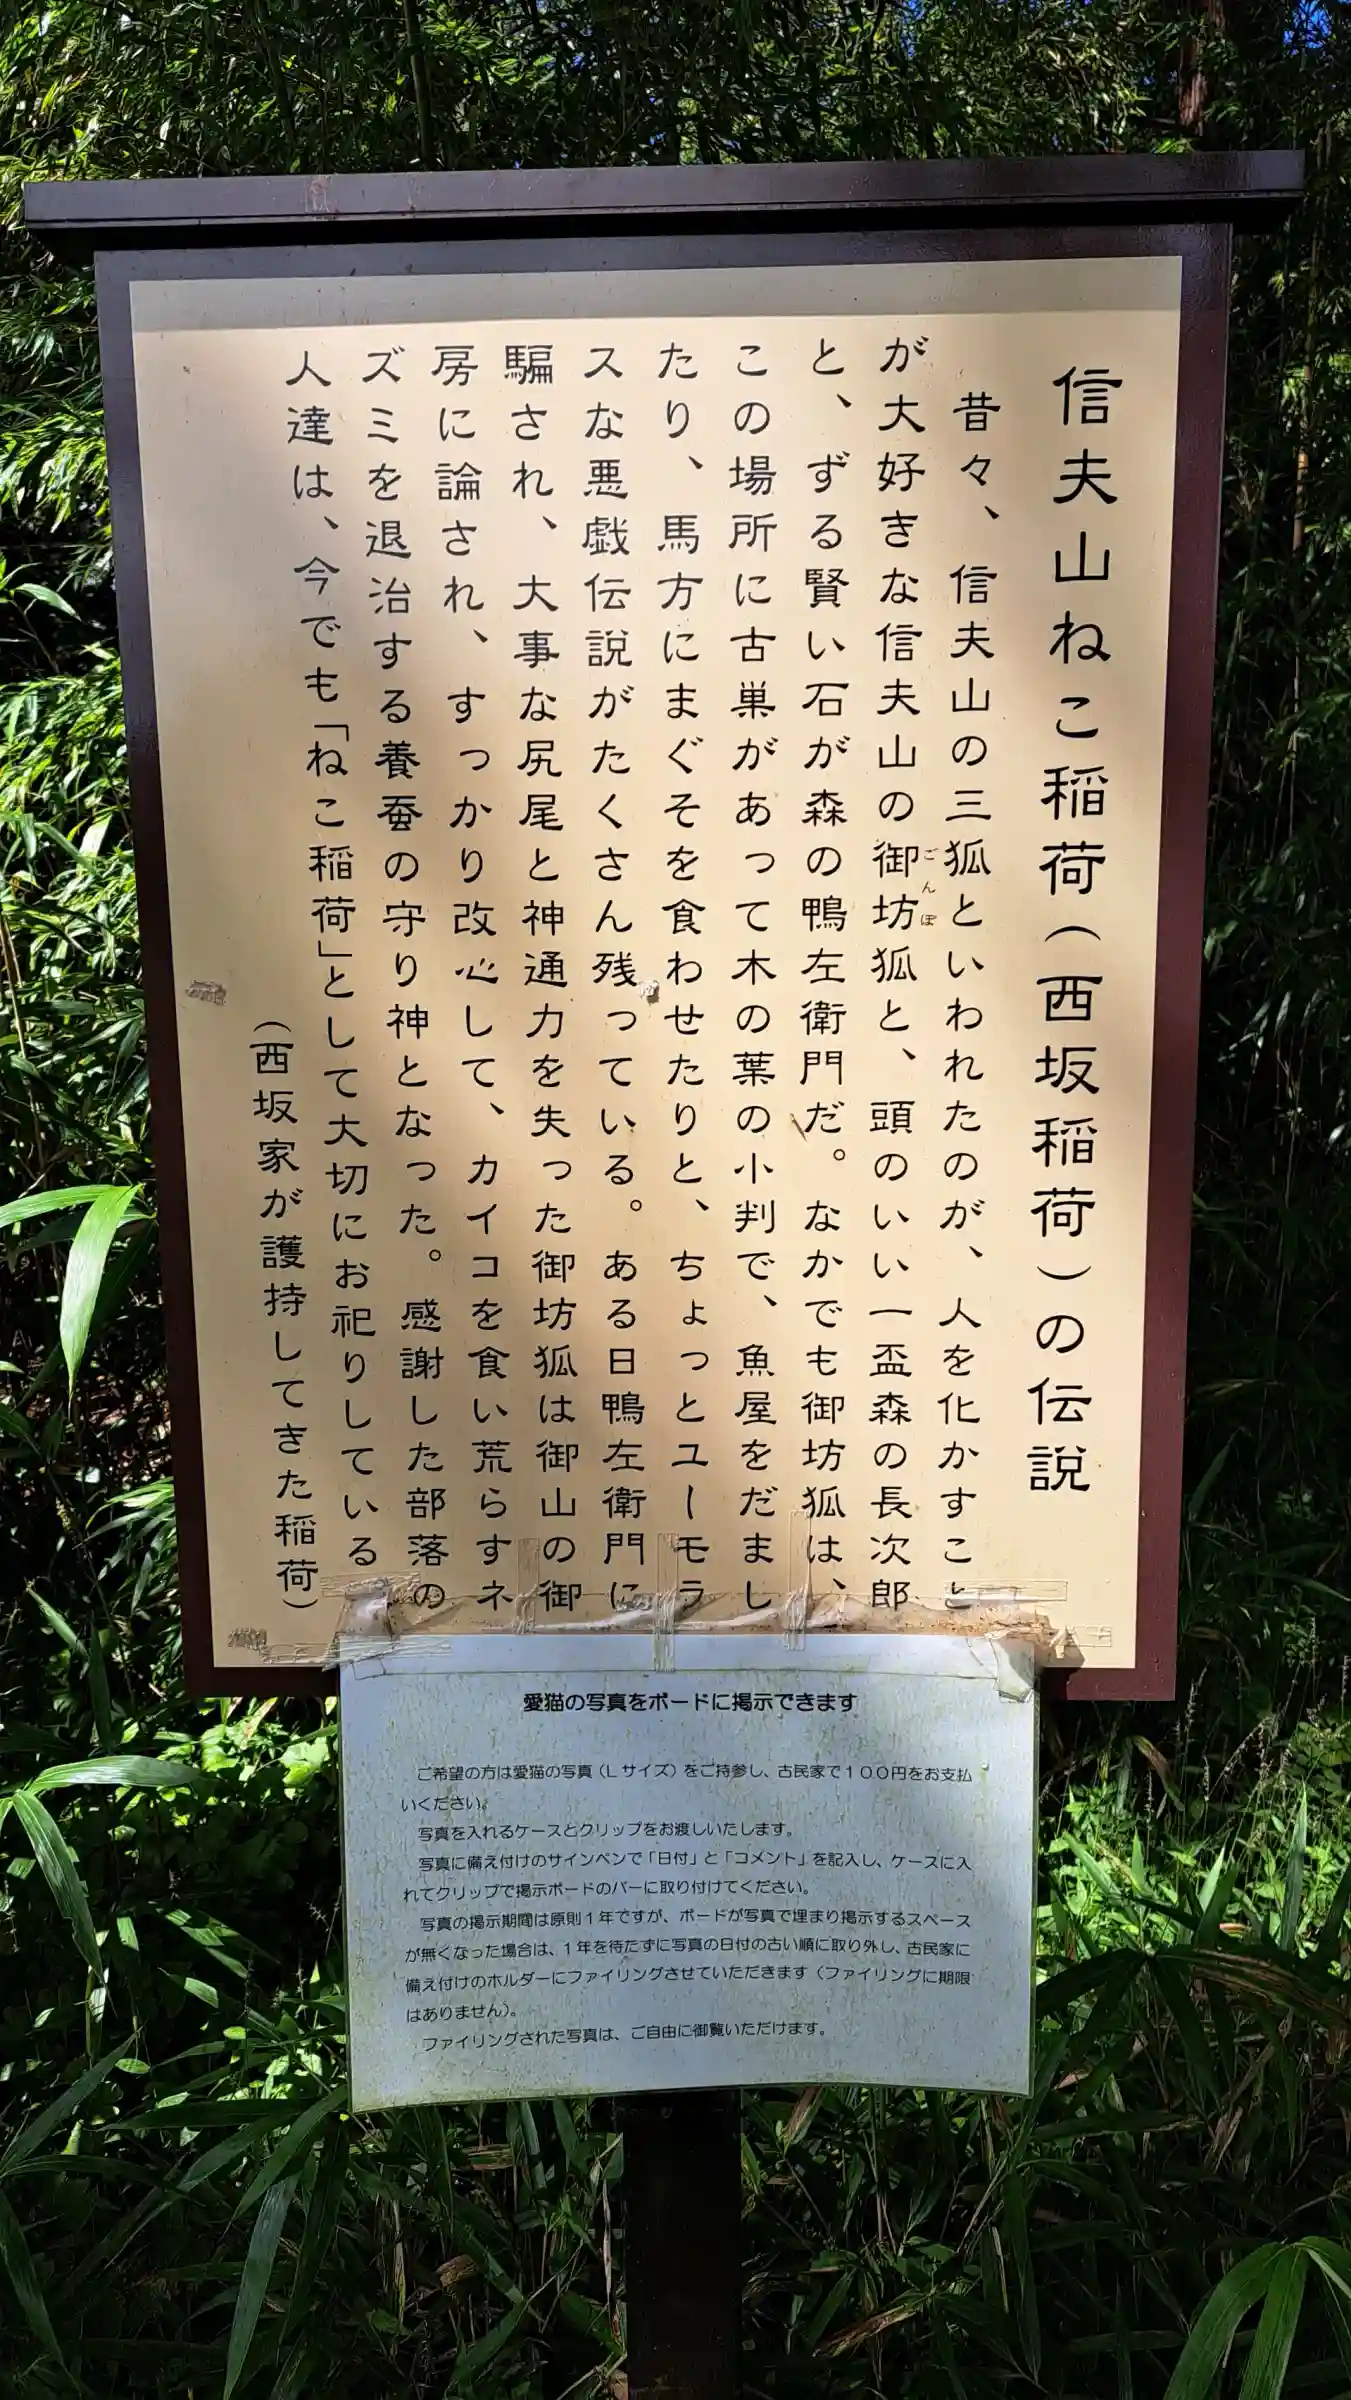 信夫山ねこ稲荷(西坂稲荷)の伝説
昔々、信夫山の三狐といわれたのが、人を化かすこと
が大好きな信夫山の御坊狐と、頭のいい一盃森の長次郎
ごんぼ
と、ずる賢い石が森の鴨左衛門だ。なかでも御坊狐は、
この場所に古巣があって木の葉の小判で、魚屋をだまし
たり、馬方にまぐそを食わせたりと、ちょっとユーモラ
スな悪戯伝説がたくさん残っている。ある日鴨左衛門に
騙され、大事な尻尾と神通力を失った御坊狐は御山の御
房に論され、すっかり改心して、カイコを食い荒らすネ
ズミを退治する養蚕の守り神となった。感謝した部落の
人達は、今でも「ねこ稲荷」として大切にお祀りしている
(西坂家が護持してきた稲荷)
愛猫の写真をボードに掲示できます
ご希望の方は愛猫の写真(Lサイズ)をご持参し、古民家で100円をお支払
いください。
写真を入れるケースとクリップをお渡しいたします。
写真に備え付けのサインペンで「日付」と「コメント」を記入し、ケースに入
れてクリップで掲示ボードのバーに取り付けてください。
写真の掲示期間は原則1年ですが、ボードが写真で埋まり掲示するスペース
が無くなった場合は、1年を待たずに写真の日付の古い順に取り外し、古民家に
備え付けのホルダーにファイリングさせていただきます(ファイリングに期限
はありません)。
ファイリングされた写真は、ご自由に御覧いただけます。